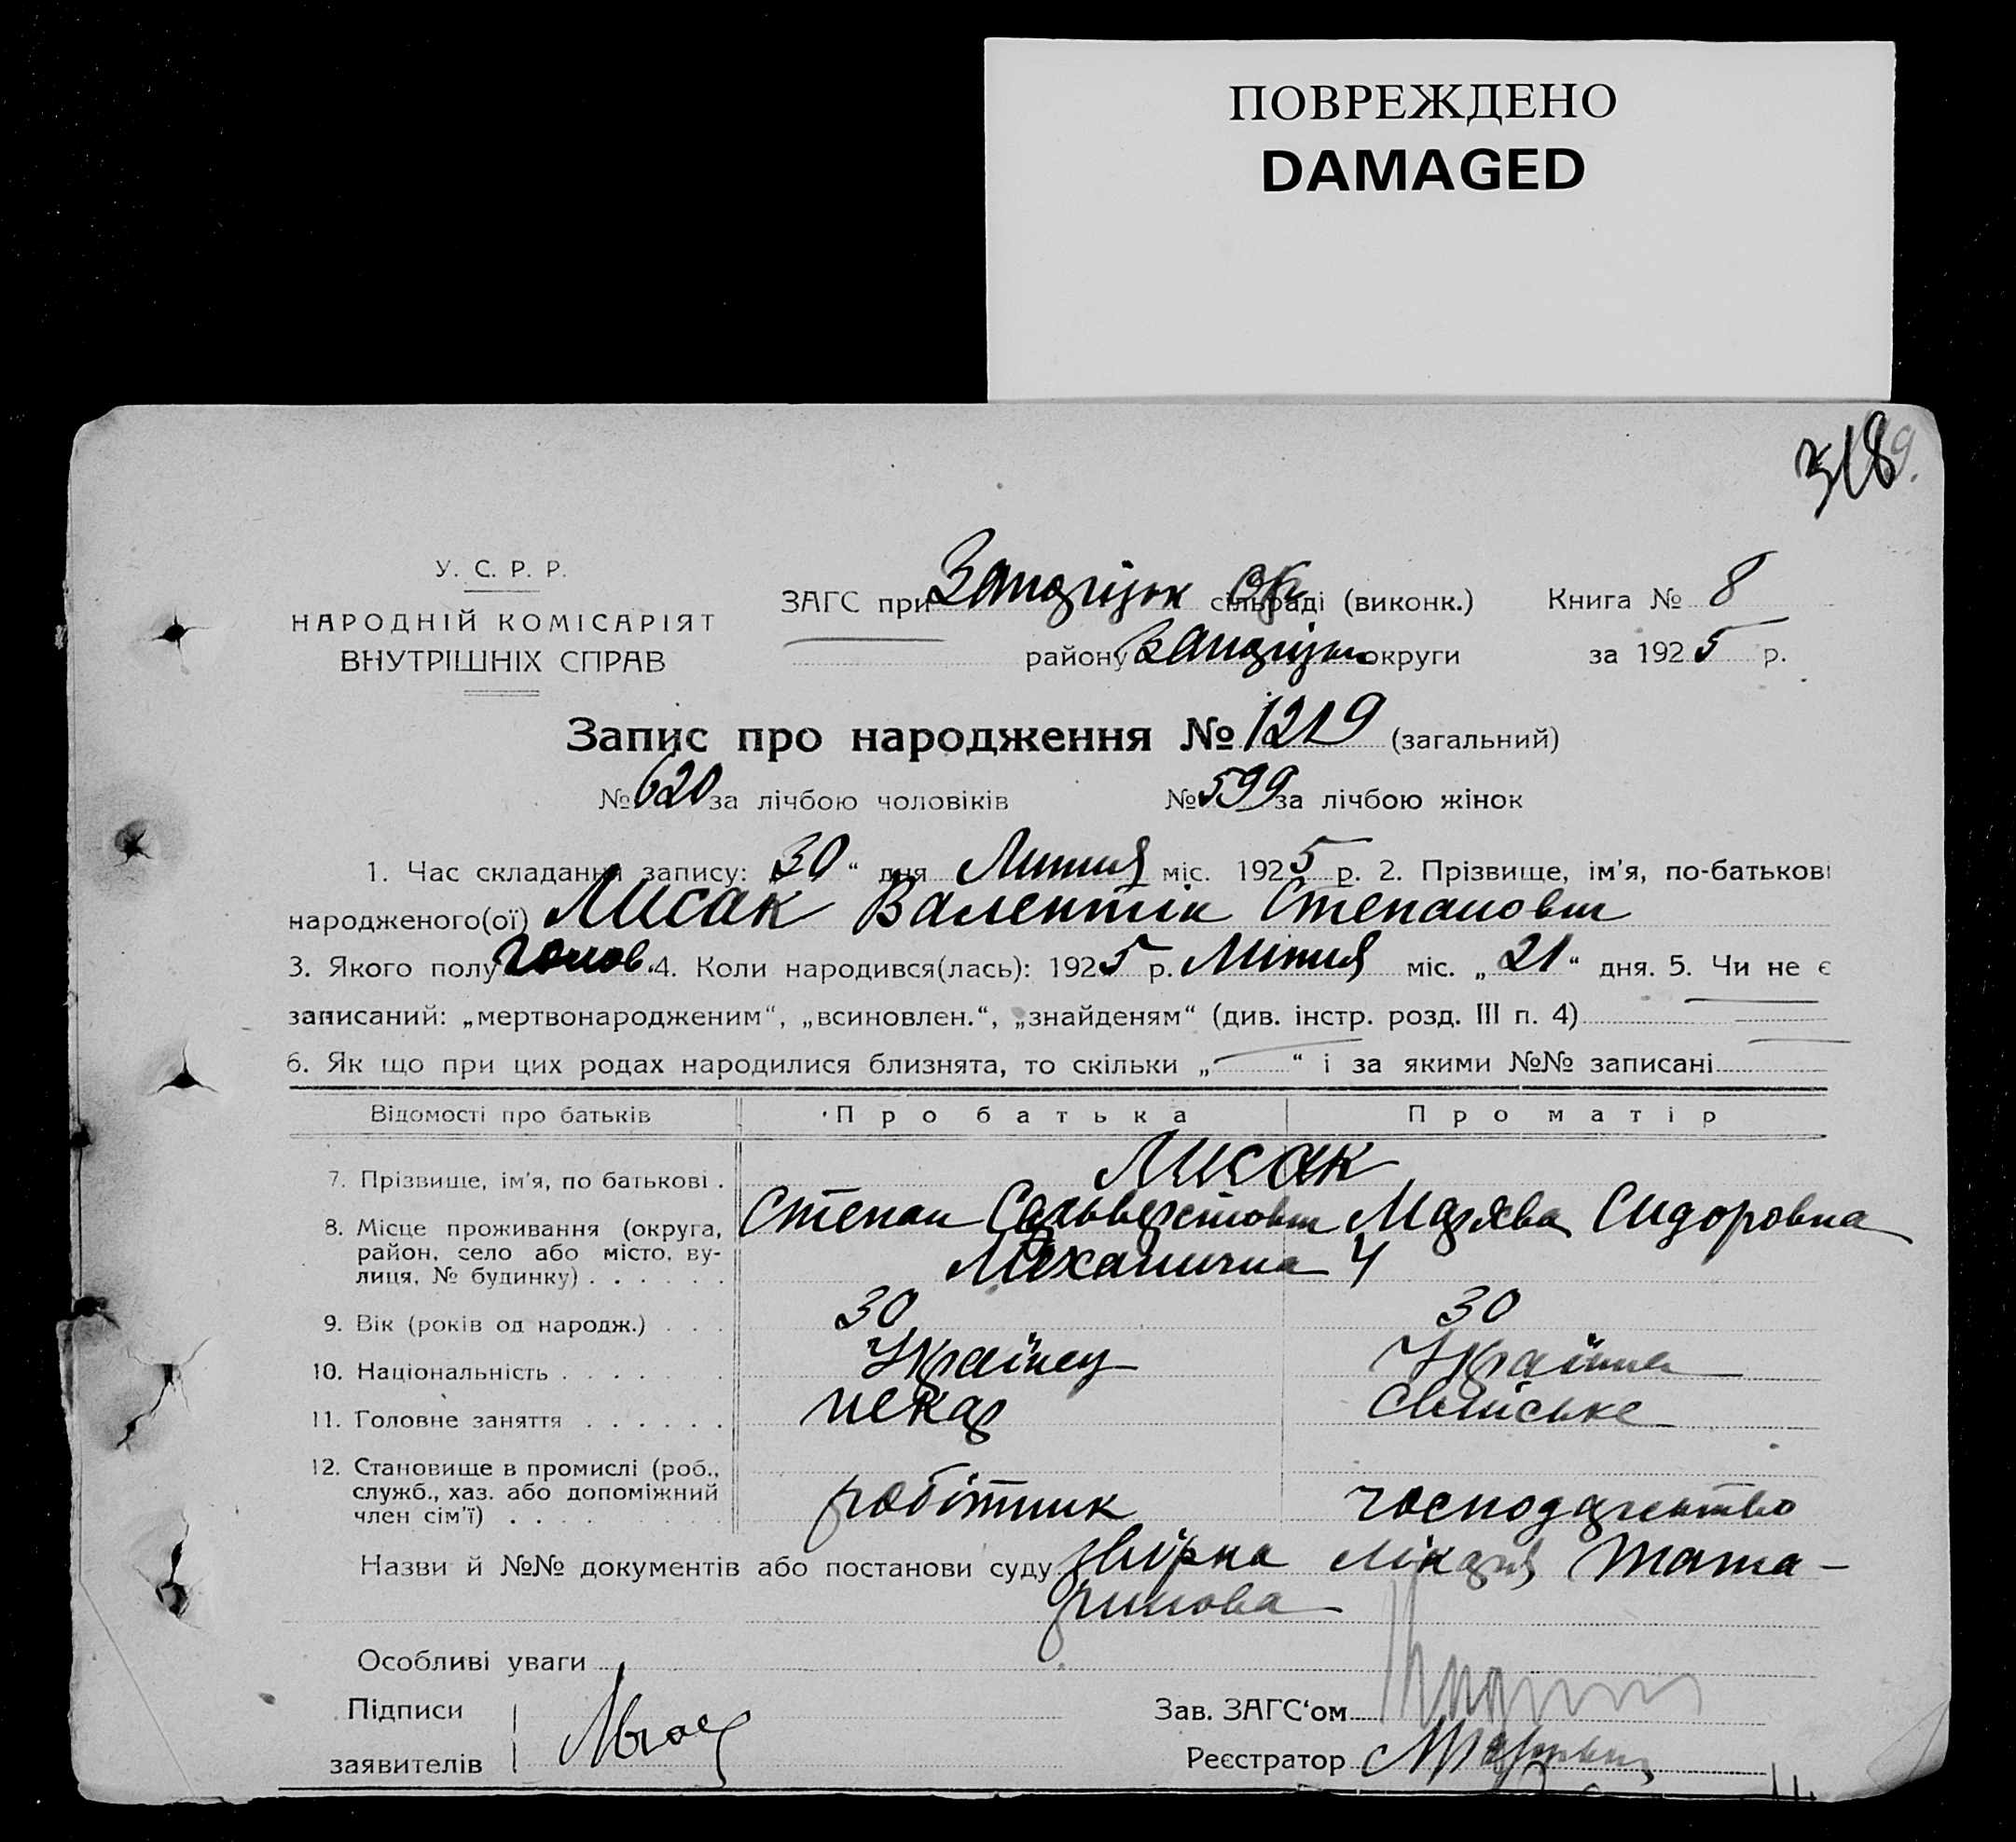 ПОВРЕЖДЕНО
DAMAGED
318
У. С. Р. Р.
НАРОДНІЙ КОМІСАРІЯТ
ВНУТРІШНІХ СПРАВ
ЗАГС при Запоріжк Ок сільраді (виконк.) Книга № 8
району Запоріжк округи за 1925 р.
Запис про народження № 1219 (загальний)
№ 620 за лічбою чоловіків № 599 за лічбою жінок
1. Час складання запису: „30“ дня Липня міс. 1925 р. 2. Прізвище, ім'я, по-батькові
народженого(ої) Лисак Валентін Степанович
3. Якого полу чолов. 4. Коли народився(лась): 1925 р. Липня міс. „21“ дня. 5. Чи не є
записаний: „мертвонародженим“, „всиновлен.“, „знайденям“ (див. інстр. розд. III п. 4)
6. Як що при цих родах народилися близнята, то скільки „—“ і за якими №№ записані
Відомості про батьків Про батька Про матір
7. Прізвище, ім'я, по батькові . Лисак
8. Місце проживання (округа, Степан Сельверстович Сидоровна
район, село або місто, ву-
лиця, № будинку) . . . . . . Механична 4
9. Вік (років од народж.) . . . 30 30
10. Національність . . . . . . . Українец Українка
11. Головне заняття . . . . . . пекар свійське
12. Становище в промислі (роб.,
служб., хаз. або допоміжний робітник господарство
член сім'ї) . . . . . . . . .
Назви й №№ документів або постанови суду звірка лікаря Тата-
ринова
Особливі уваги
Підписи Зав. ЗАГС'ом
заявителів Реєстратор